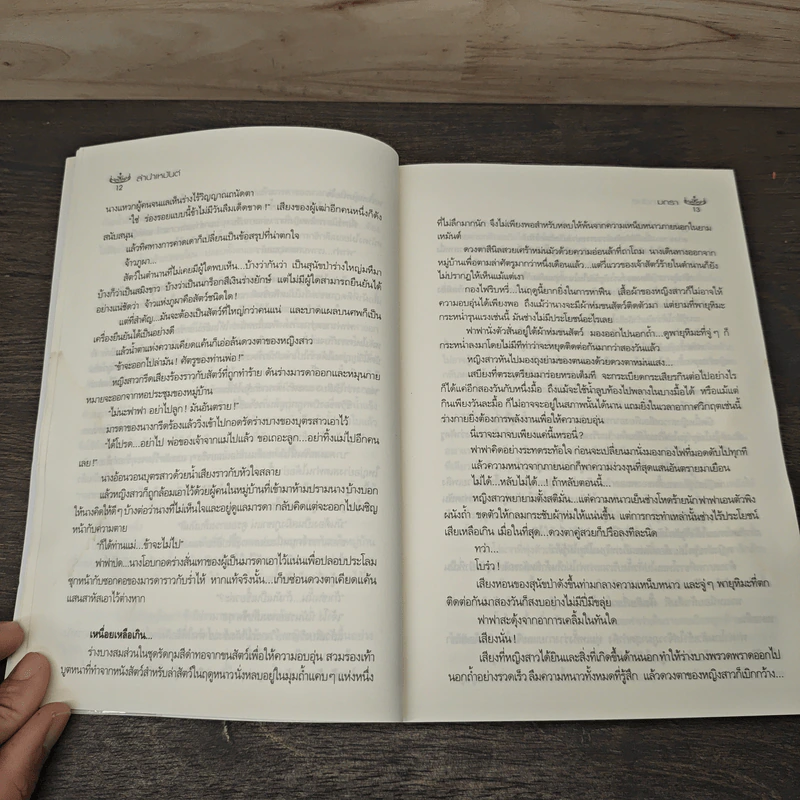 ลำนำเหมันต์
12
นางแหวกผู้คนจนแลเห็นร่างไร้วิญญาณถนัดตา
"ใช่ ร่องรอยแบบนี้ข้าไม่มีวันลืมเด็ดขาด !" เสียงของผู้เฒ่าอีกคนหนึ่งก็ดัง
สนับสนุน
แล้วทิศทางการคาดเดาก็เปลี่ยนเป็นข้อสรุปที่น่าตกใจ
จ้าวภูผา...
สัตว์ในตำนานที่ไม่เคยมีผู้ใดพบเห็น...บ้างว่ากันว่า เป็นสุนัขป่าร่างใหญ่มหึมา
บ้างก็ว่าเป็นสมิงขาว บ้างก็ว่าเป็นนกร็อกสีเงินร่างยักษ์ แต่ไม่มีผู้ใดสามารถยืนยันได้
อย่างแน่ชัดว่า จ้าวแห่งภูผาคือสัตว์ชนิดใด !
แต่ที่สำคัญ...มันจะต้องเป็นสัตว์ที่ใหญ่กว่าคนแน่ และบาดแผลบนศพก็เป็น
เครื่องยืนยันได้เป็นอย่างดี
แล้วน้ำตาแห่งความเคียดแค้นก็เอ่อล้นดวงตาของหญิงสาว
"ข้าจะออกไปล่ามัน ! ศัตรูของท่านพ่อ !"
หญิงสาวกรีดเสียงร้องราวกับสัตว์ที่ถูกทำร้าย ดันร่างมารดาออกและหมุนกาย
หมายจะออกจากหอประชุมของหมู่บ้าน
"ไม่นะฟาฟา อย่าไปลูก ! มันอันตราย !"
มารดาของนางกรีดร้องแล้ววิ่งเข้าไปกอดรัดร่างบางของบุตรสาวเอาไว้
"ได้โปรด...อย่าไป พ่อของเจ้าจากแม่ไปแล้ว ขอเถอะลูก...อย่าทิ้งแม่ไปอีกคน
เลย !"
นางอ้อนวอนบุตรสาวด้วยน้ำเสียงราวกับหัวใจสลาย
แล้วหญิงสาวก็ถูกล้อมเอาไว้ด้วยผู้คนในหมู่บ้านที่เข้ามาห้ามปรามนาง บ้างบอก
ให้นางคิดให้ดีๆ บ้างต่อว่านางที่ไม่เห็นใจและอยู่ดูแลมารดา กลับคิดแต่จะออกไปเผชิญ
หน้ากับความตาย
"ก็ได้ท่านแม่...ข้าจะไม่ไป"
ฟาฟาปด...นางโอบกอดร่างสั่นเทาของผู้เป็นมารดาเอาไว้แน่นเพื่อปลอบประโลม
ซุกหน้ากับซอกคอของมารดาราวกับร่ำไห้ หากแท้จริงนั้น...เก็บซ่อนดวงตาเคียดแค้น
แสนสาหัสเอาไว้ต่างหาก
เหนื่อยเหลือเกิน...
ร่างบางสมส่วนในชุดรัดกุมสีดำทอจากขนสัตว์เพื่อให้ความอบอุ่น สวมรองเท้า
บูตหนาที่ทำจากหนังสัตว์สำหรับล่าสัตว์ในฤดูหนาวนั่งหลบอยู่ในมุมถ้ำแคบๆ แห่งหนึ่ง
มกธา
13
ที่ไม่ลึกมากนัก จึงไม่เพียงพอสำหรับหลบให้พ้นจากความเหน็บหนาวภายนอกในยาม
เหมันต์
ดวงตาสีนิลสวยเศร้าหม่นมัวด้วยความอ่อนล้าที่ถาโถม นางเดินทางออกจาก
หมู่บ้านเพื่อตามล่าศัตรูมากว่าหนึ่งเดือนแล้ว...แต่วี่แววของเจ้าสัตว์ร้ายในตำนานก็ยัง
ไม่ปรากฏให้เห็นแม้แต่เงา
กองไฟริบหรี่...ในฤดูนี้ยากยิ่งในการหาฟืน เสื้อผ้าของหญิงสาวก็ไม่อาจให้
ความอบอุ่นได้เพียงพอ ถึงแม้ว่านางจะมีผ้าห่มขนสัตว์ติดตัวมา แต่ยามที่พายุหิมะ
กระหน่ำรุนแรงเช่นนี้ มันช่างไม่มีประโยชน์อะไรเลย
ฟาฟานั่งตัวสั่นอยู่ใต้ผ้าห่มขนสัตว์ มองออกไปนอกถ้ำ...ดูพายุหิมะที่จู่ๆ ก็
กระหน่ำลงมาโดยไม่มีทีท่าว่าจะหยุดติดต่อกันมากว่าสองวันแล้ว
หญิงสาวหันไปมองถุงย่ามของตนเองด้วยดวงตาหม่นแสง...
เสบียงที่ตระเตรียมมาร่อยหรอเต็มที จะกระเบียดกระเสียรกินต่อไปอย่างไร
ก็ได้แค่อีกสองวันกับหนึ่งมื้อ ถึงแม้จะใช้น้ำลูบท้องไปพลางในบางมื้อได้ หรือแม้แต่
กินเพียงวันละมื้อ ก็ไม่อาจจะอยู่ในสภาพนั้นได้นาน แถมยิ่งในเวลาอากาศวิกฤตเช่นนี้
ร่างกายยิ่งต้องการพลังงานเพื่อให้ความอบอุ่น
นี่เราจะมาจบเพียงแค่นี้เหรอนี่ ?
ฟาฟาคิดอย่างระทดระท้อใจ ก่อนจะเปลี่ยนมานั่งมองกองไฟที่มอดดับไปทุกที
แล้วความหนาวจากภายนอกก็พาความง่วงงุนที่สุดแสนอันตรายมาเยือน
ไม่ได้...หลับไม่ได้...! ถ้าหลับตอนนี้...
หญิงสาวพยายามตั้งสติมั่น...แต่ความหนาวเย็นช่างโหดร้ายนัก ฟาฟาเอนตัวพิง
ผนังถ้ำ ขดตัวให้กลมกระชับผ้าห่มให้แน่นขึ้น แต่การกระทำเหล่านั้นช่างไร้ประโยชน์
เสียเหลือเกิน เมื่อในที่สุด...ดวงตาคู่สวยก็ปรือลงทีละนิด
ทว่า...
โบร๋ว !
เสียงหอนของสุนัขป่าดังขึ้นท่ามกลางความเหน็บหนาว และจู่ๆ พายุหิมะที่ตก
ติดต่อกันมาสองวันก็สงบอย่างไม่มีปี่มีขลุ่ย
ฟาฟาสะดุ้งจากอาการเคลิ้มในทันใด
เสียงนั่น !
เสียงที่หญิงสาวได้ยินและสิ่งที่เกิดขึ้นด้านนอกทำให้ร่างบางพรวดพราดออกไป
นอกถ้ำอย่างรวดเร็ว ลืมความหนาวทั้งหมดที่รู้สึก แล้วดวงตาของหญิงสาวก็เบิกกว้าง...